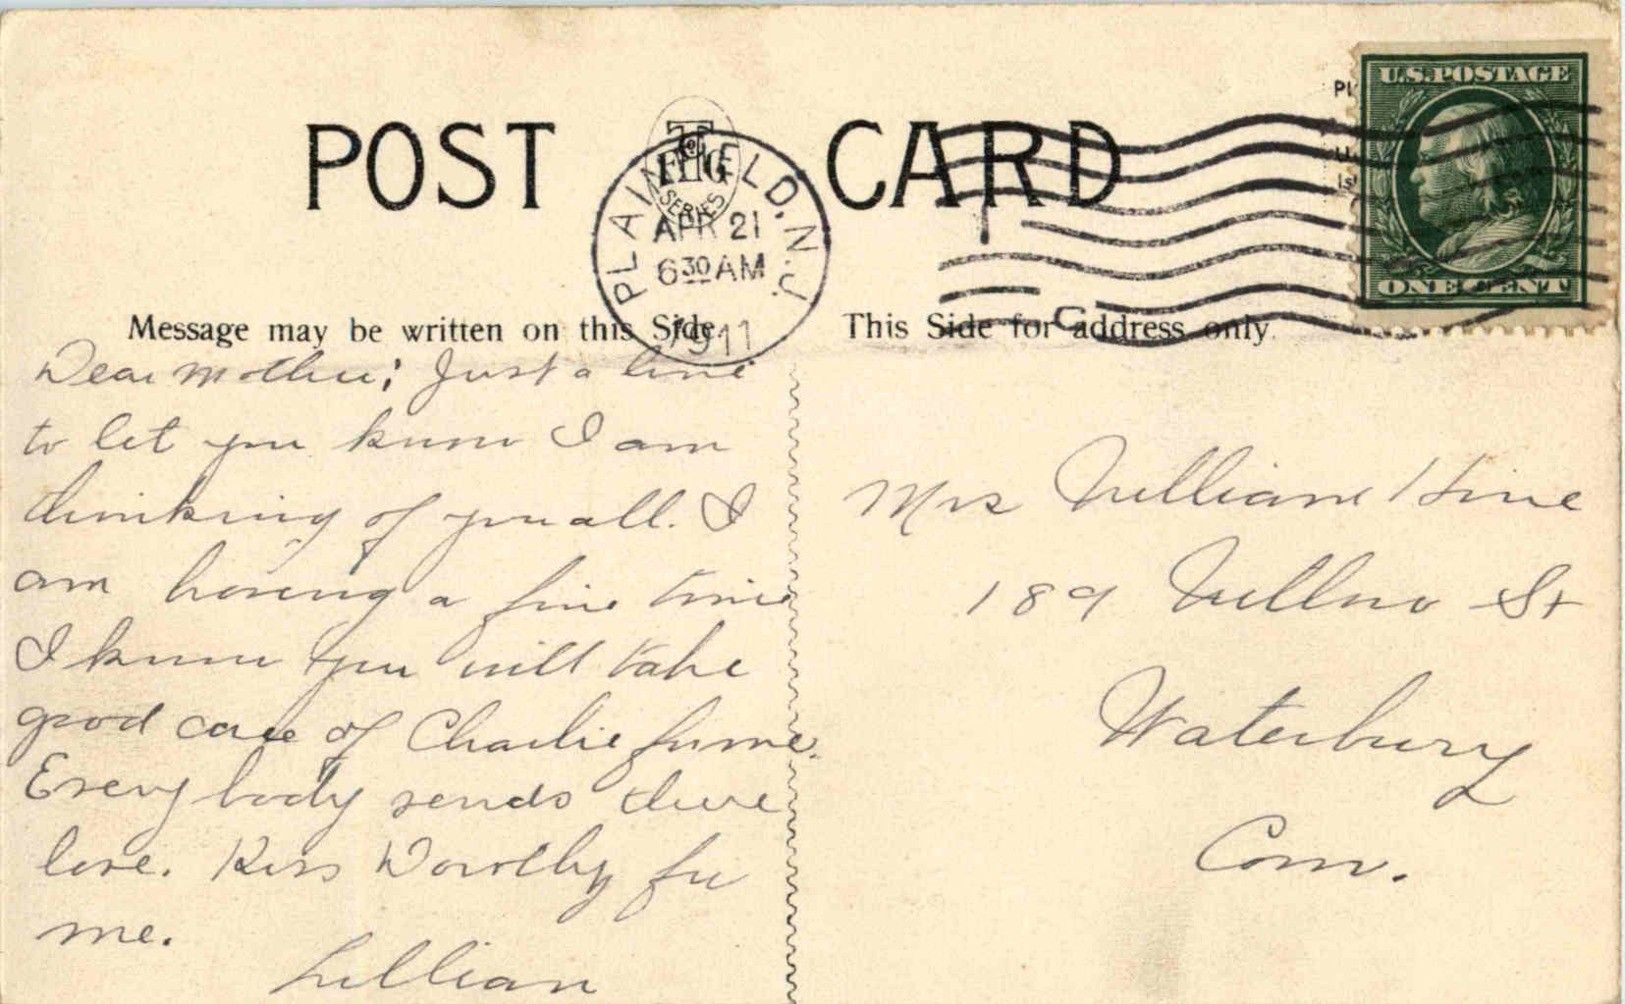 POST CARD
U.S. POSTAGE
ONE CENT
SERIES
PLAINFIELD, N.J.
APR 21
6 30 AM
1911
Message may be written on this Side.
This Side for address only.
Dear Mother; Just a line
to let you know I am
thinking of you all. I
am having a fine time
I know you will take
good care of Charlie for me.
Every body sends there
love. Kiss Dorothy for
me.
Lillian
Mrs William Hine
189 Willow St
Waterbury
Conn.